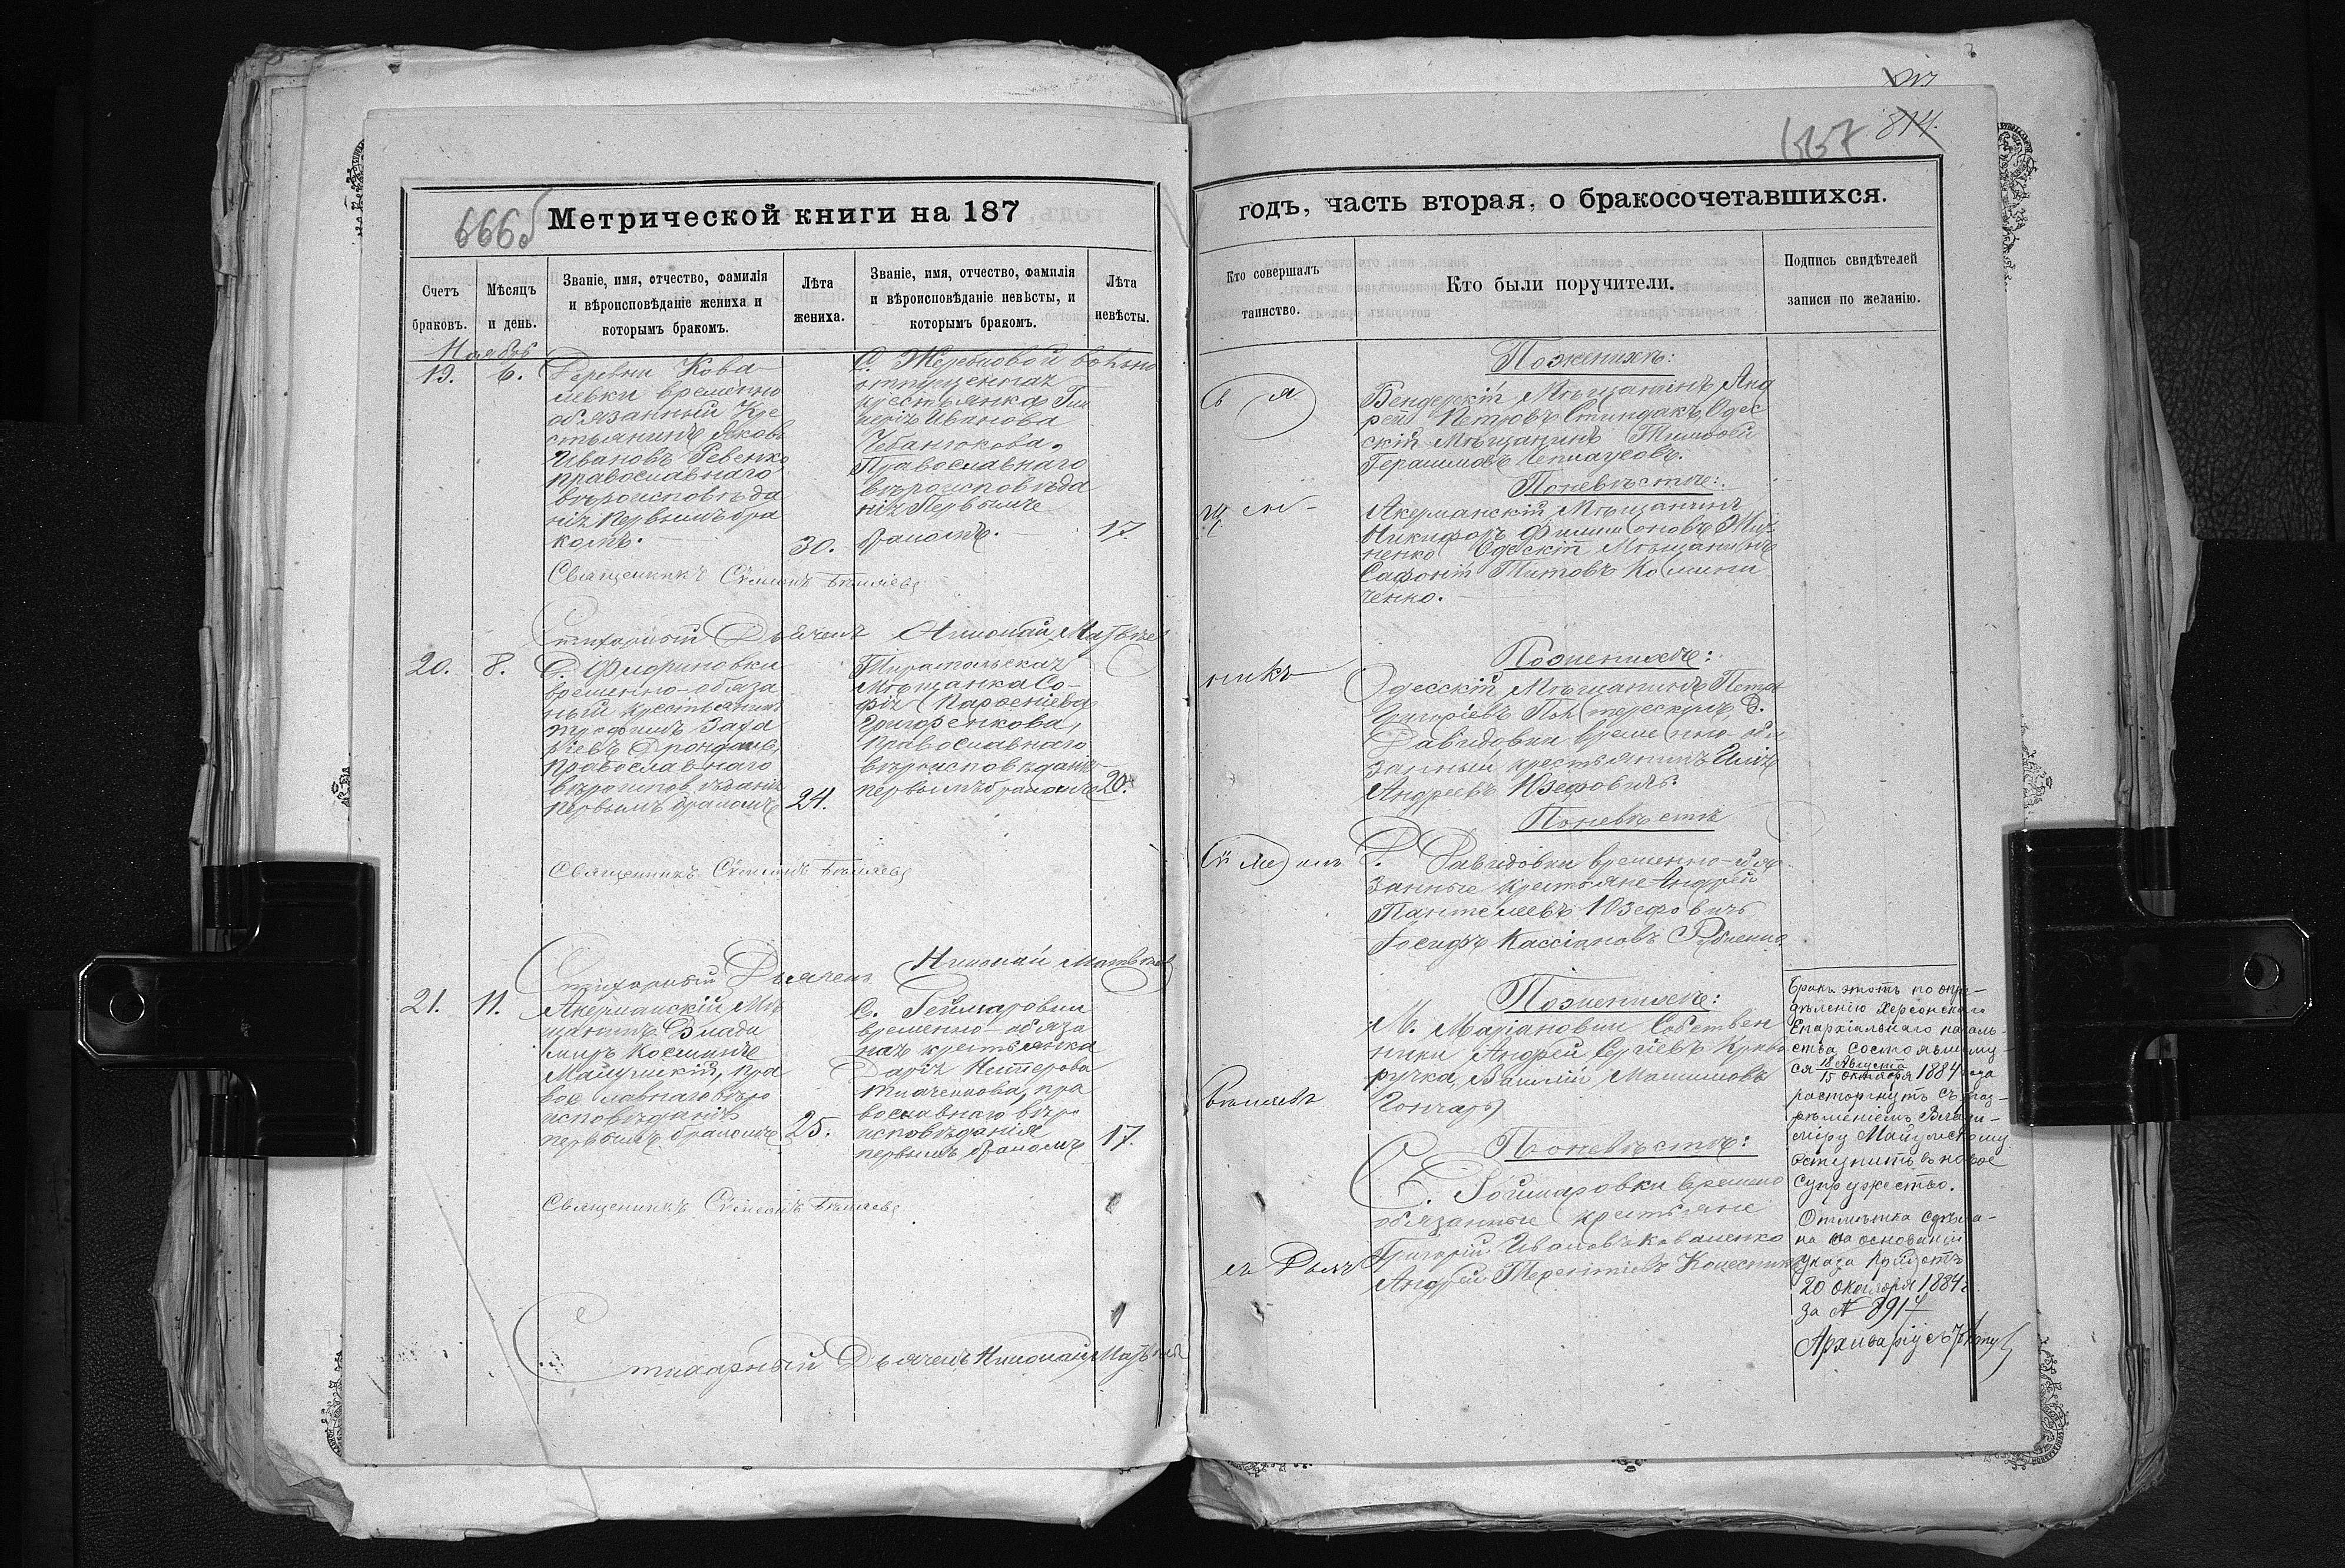 666б
Метрической книги на 187
Счетъ браковъ.
Мѣсяцъ и день.
Званіе, имя, отчество, фамилія
и вѣроисповѣданіе жениха и
которымъ бракомъ.
Лѣта жениха.
Званіе, имя, отчество, фамилія
и вѣроисповѣданіе невѣсты, и
которымъ бракомъ.
Лѣта невѣсты.
Ноябрь
19. 6.
Деревни Кова
левки временно
обязанный Кре
стьянинъ Яковъ
Ивановъ Ревенко
православнаго
вѣроисповѣда
нія первымъ бра
комъ.
30.
С. Жеребковой вольно
отпущенная
крестьянка Гли
керія Иванова
Чебанюкова,
Православнаго
вѣроисповѣда
нія Первымъ
бракомъ.
17.
Священникъ Симеонъ Бѣляевъ
Стихарный Дьячекъ Николай Матвѣев
20. 8.
С. Флориновки
временно-обяза
ный крестьянинъ
Трофимъ Заха
ріевъ
православнаго
вѣроисповѣданія
первымъ бракомъ
24.
Тираспольская
Мѣщанка Со-
фія Парѳеніева
православнаго
вѣроисповѣданія
первымъ бракомъ
20.
Священникъ Симеонъ Бѣляевъ
Стихарный Дьячекъ Николай Матвѣев
21. 11.
Акерманскій Мѣ
щанинъ Влади
миръ Косминъ
Майумскій, пра
вославнаго вѣро
исповѣданія
первымъ бракомъ
25.
С. Геймаровки
временно-обяза
ная крестьянка
Дарія Нестерова
Ткаченкова, пра
вославнаго вѣро
исповѣданія
первымъ бракомъ
17.
Священникъ Симеонъ Бѣляевъ
Стихарный Дьячекъ Николай Матвѣев
667 814.
годъ, часть вторая, о бракосочетавшихся.
Кто совершалъ таинство.
Кто были поручители.
Подпись свидѣтелей
записи по желанію.
Св я
щ ен-
никъ
Си ме онъ
Бѣляевъ
съ Дьяч
По женихѣ:
Бендерскій Мѣщанинъ Анд
рей Петровъ Спиндакъ Одес
скій Мѣщанинъ Тимофей
Герасимовъ
По невѣстѣ:
Акерманскій Мѣщанинъ
Никифоръ Филимоновъ
ненко Одесскій Мѣщанинъ
Сафоній Титовъ
ченко.
По женихѣ:
Одесскій Мѣщанинъ Петръ
Григоріевъ Д.
Давидовки временно обя
занный крестьянинъ Илія
Андреевъ Юзефовичъ.
По невѣстѣ
Д. Давидовки временно-обя
занные крестьяне Андрей
Пантелеевъ Юзефовичъ
Іосифъ Кассіановъ Рубленко
По женихѣ:
М. Маріановки Собствен
ники Андрей Сергіевъ
ручка, Василій Максимовъ
Гончаръ
По невѣстѣ:
С. Геймаровки временно
обязанные крестьяне
Григорій Ивановъ Коваленко
Андрей Терентіевъ Колесник
Бракъ этотъ по опре-
дѣленію Херсонскаго
Епархіальнаго началь-
ства состоявшему-
ся 18 Августа
15 октября 1884 года
расторгнутъ съ раз-
рѣшеніемъ Влади-
міру Майумскому
вступить въ новое
супружество.
Отмѣтка сдѣла-
на на основаніи
указа
20 октября 1884 г.
за № 8914
Архиваріусъ